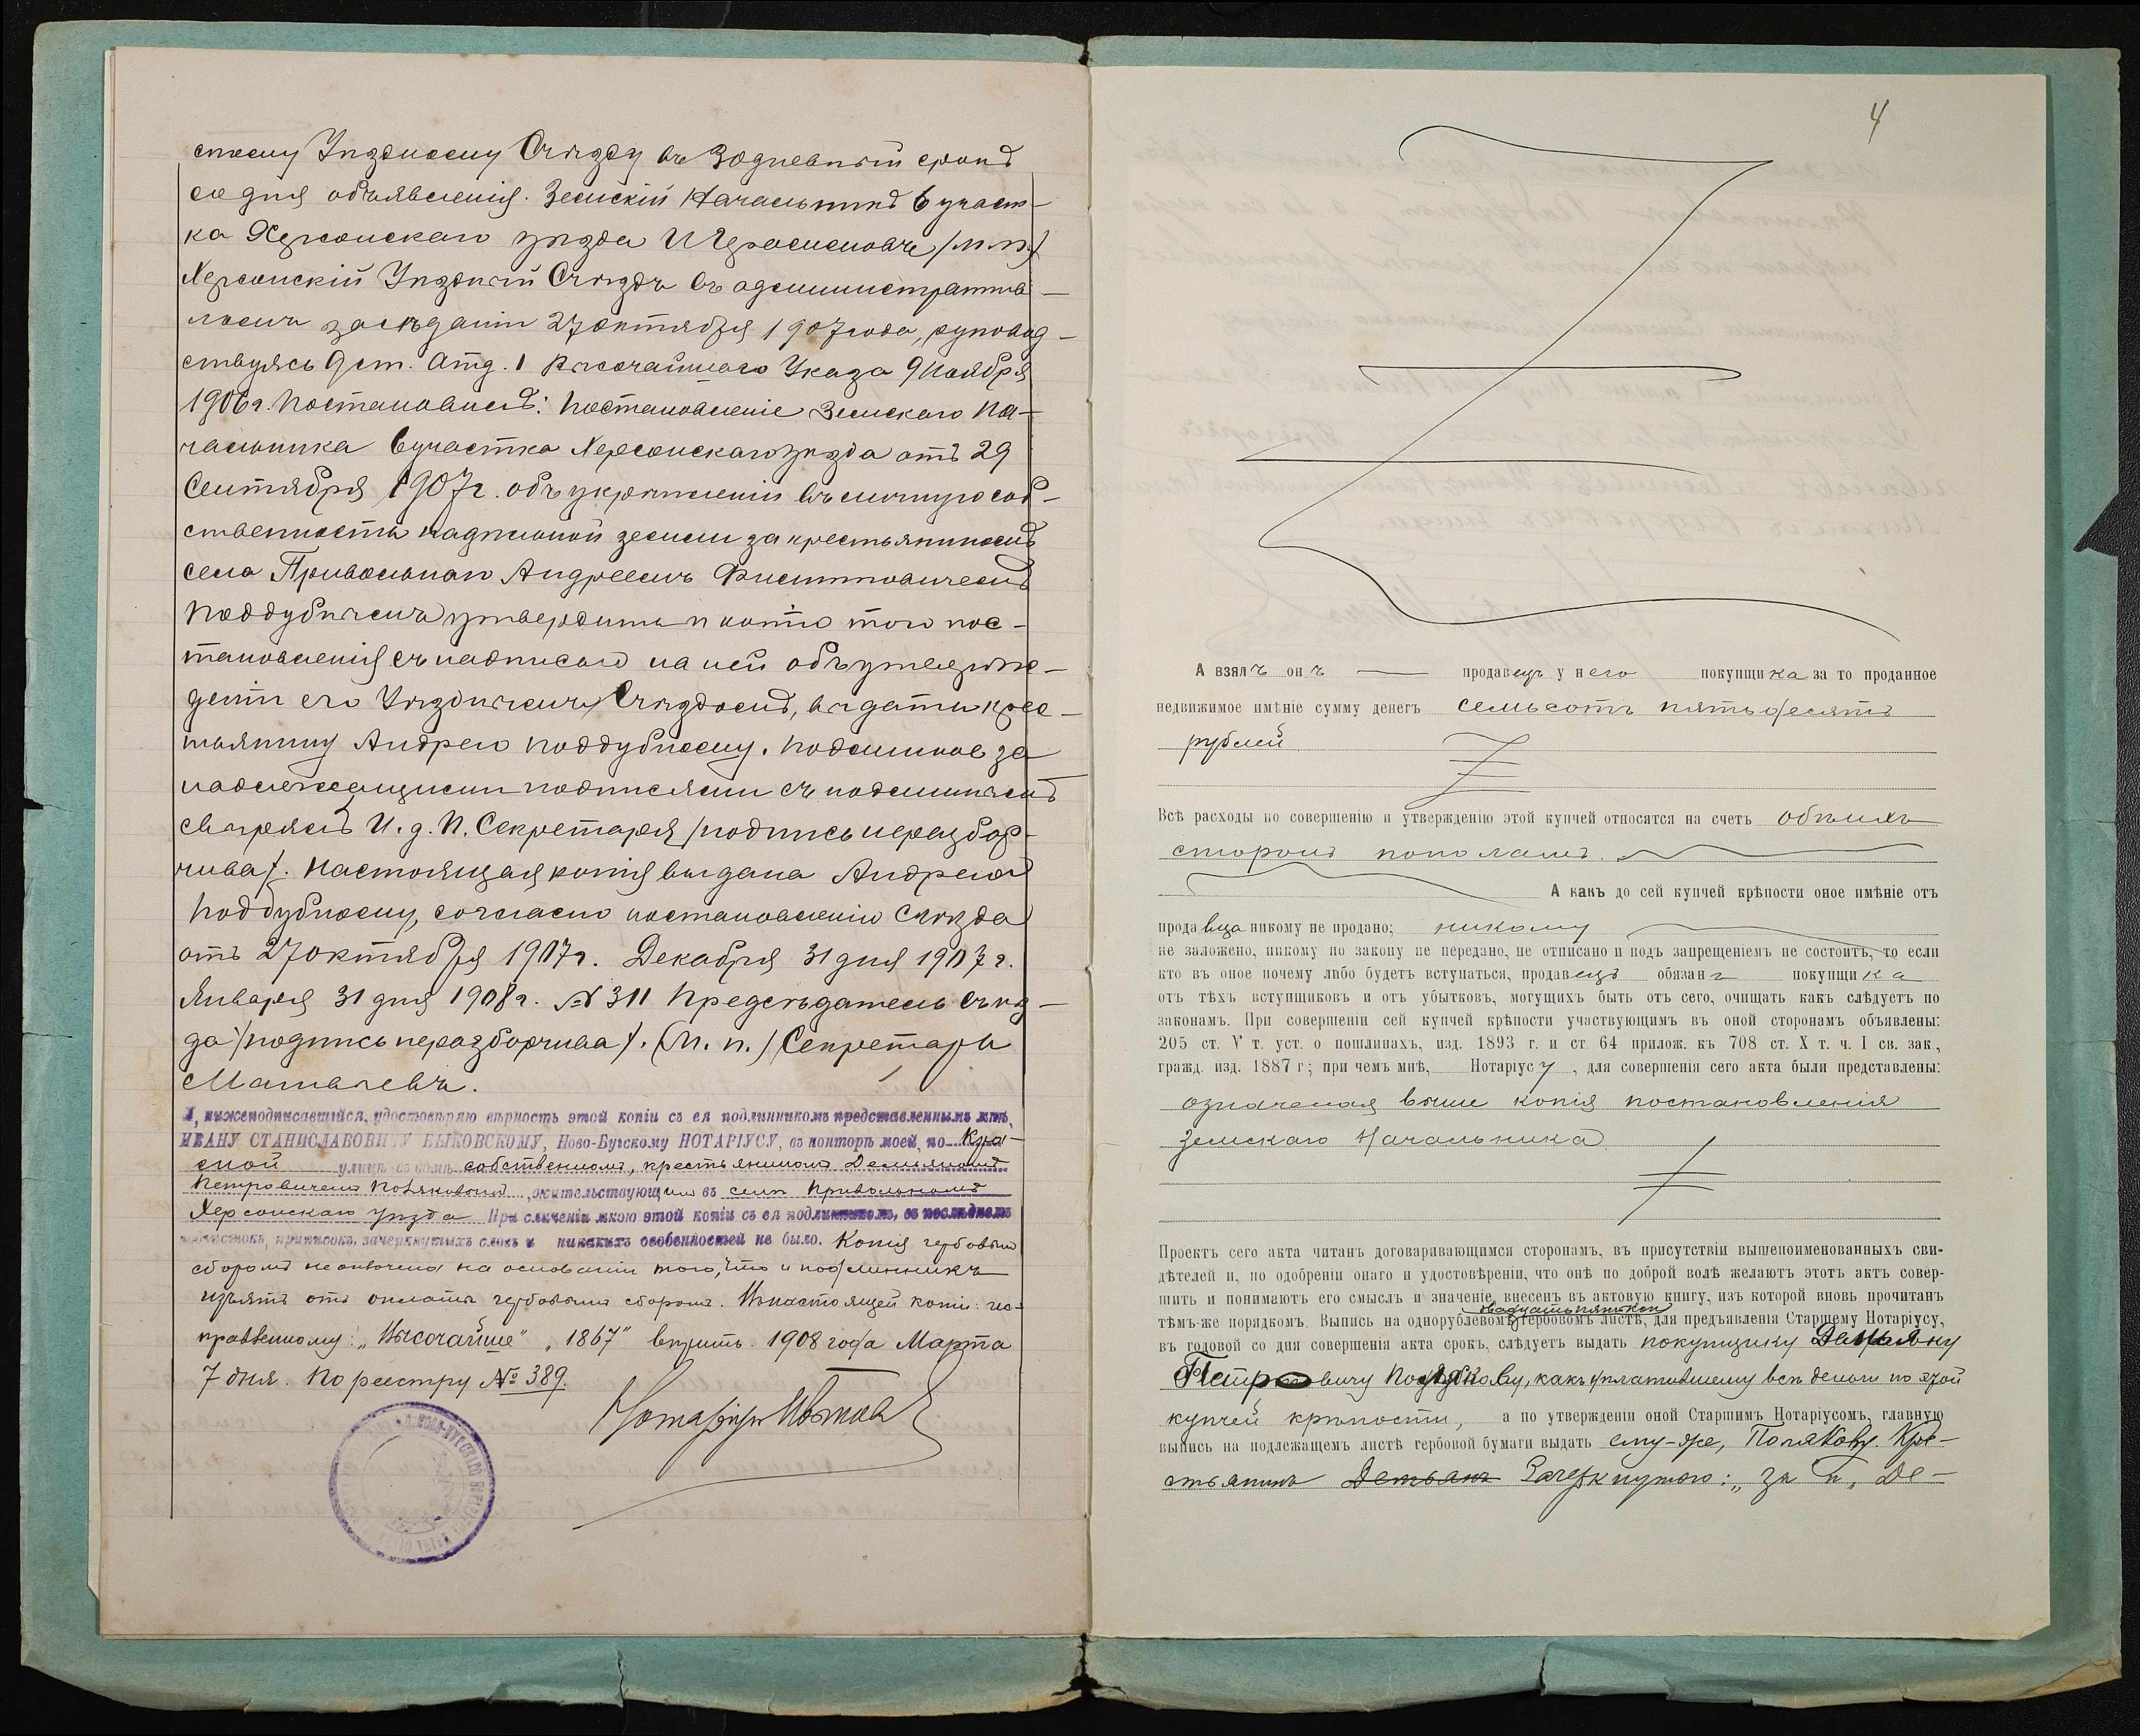 скому Уѣздному Съѣзду въ 30дневный срокъ
со дня объявленія. Земскій Начальникъ 6 участ-
ка Херсонскаго уѣзда И Герасимовъ /М.П./
Херсонскій Уѣздный Съѣздъ въ административ-
номъ засѣданіи 27 Октября 1907 года, руковод-
ствуясь 9 ст. Отд. 1 Высочайшаго Указа 9 Ноября
1906 г. Постановилъ: Постановленіе Земскаго На-
чальника 6 участка Херсонскаго уѣзда отъ 29
Сентября 1907 г. объ укрѣпленіи въ личную соб-
ственность надѣльной земли за крестьяниномъ
села Привольнаго Андреемъ Филипповичемъ
Поддубнымъ утвердить и копію того пос-
тановленія съ надписью на ней объ утвержде-
деніи его Уѣзднымъ Съѣздомъ, выдать крес-
тьянину Андрею Поддубному. Подлинное за
надлежащими подписями съ подлиннымъ
свѣрялъ И. д. П. Секретаря /подпись неразбор-
чива/. Настоящая копія выдана Андрею
Поддубному, согласно постановленію Съѣзда
отъ 27 октября 1907 г. Декабря 31 дня 1907 г.
Января 31 дня 1908 г. № 311 Предсѣдатель Съѣз-
да /подпись неразборчива/. (М. п.) Секретарь
Матвѣевъ.
Я, нижеподписавшійся, удостовѣряю вѣрность этой копіи съ ея подлинникомъ представленнымъ мнѣ,
ИВАНУ СТАНИСЛАВОВИЧУ БЫКОВСКОМУ, Ново-Бугскому НОТАРІУСУ, въ конторѣ моей, по Кра-
сной улицѣ въ домѣ собственномъ, крестьяниномъ Демьяномъ
Петровичемъ Поляковымъ, жительствующимъ въ селѣ Привольномъ
Херсонскаго уѣзда При сличеніи мною этой копіи съ ея подлинникомъ, въ послѣднемъ
подчистокъ, приписокъ, зачеркнутыхъ словъ и никакихъ особенностей не было. Копія гербовымъ
сборомъ не оплачена на основаніи того, что и подлинникъ
изъятъ отъ оплаты гербовымъ сборомъ. Въ настоящей копіи: по-
правленному: „Высочайше" „1867" вѣрить. 1908 года Марта
7 дня. По реестру № 389.
Нотаріусъ
4
А взялъ онъ продавецъ у него покупщика за то проданное
недвижимое имѣніе сумму денегъ семьсотъ пятьдесятъ
рублей
Всѣ расходы по совершенію и утвержденію этой купчей относятся на счетъ обѣихъ
сторонъ пополамъ.
А какъ до сей купчей крѣпости оное имѣніе отъ
продавца никому не продано; никому
не заложено, никому по закону не передано, не отписано и подъ запрещеніемъ не состоитъ, то если
кто въ оное почему либо будетъ вступаться, продавецъ обязанъ покупщика
отъ тѣхъ вступщиковъ и отъ убытковъ, могущихъ быть отъ сего, очищать какъ слѣдуетъ по
законамъ. При совершеніи сей купчей крѣпости участвующимъ въ оной сторонамъ объявлены:
205 ст. V т. уст. о пошлинахъ, изд. 1893 г. и ст. 64 прилож. къ 708 ст. X т. ч. I св. зак.,
гражд. изд. 1887 г; при чемъ мнѣ, Нотаріусу, для совершенія сего акта были представлены:
означенная выше копія постановленія
Земскаго Начальника
Проектъ сего акта читанъ договаривающимся сторонамъ, въ присутствіи вышепоименованныхъ сви-
дѣтелей и, по одобреніи онаго и удостовѣреніи, что онѣ по доброй волѣ желаютъ этотъ актъ совер-
шить и понимаютъ его смыслъ и значеніе, внесенъ въ актовую книгу, изъ которой вновь прочитанъ
двадцатьпятькоп
тѣмъ-же порядкомъ. Выпись на однорублевомъ гербовомъ листѣ, для предъявленія Старшему Нотаріусу,
въ годовой со дня совершенія акта срокъ, слѣдуетъ выдать покупщику Демьяну
Петровичу Полякову, какъ уплатившему всѣ деньги по этой
купчей крѣпости, а по утвержденіи оной Старшимъ Нотаріусомъ, главную
выпись на подлежащемъ листѣ гербовой бумаги выдать ему-же, Полякову. Кре-
стьянинъ Демьянъ Зачеркнутого: „за п„ Де-